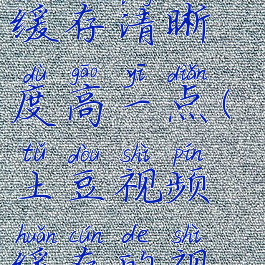 缓存清晰
dù gāo yī diǎn
度高一点(
tǔ dòu shì pín
土豆视频
huǎn cún de shì
缓存的视